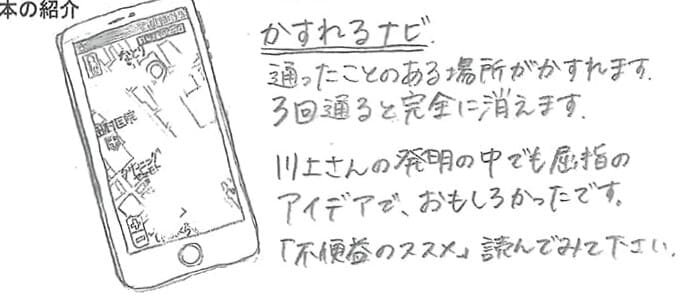 本の紹介
かすれるナビ.
通ったことのある場所がかすれます.
3回通ると完全に消えます.
川上さんの発明の中でも屈指の
アイデアで、おもしろかったです。
「不便益のススメ」読んでみて下さい.